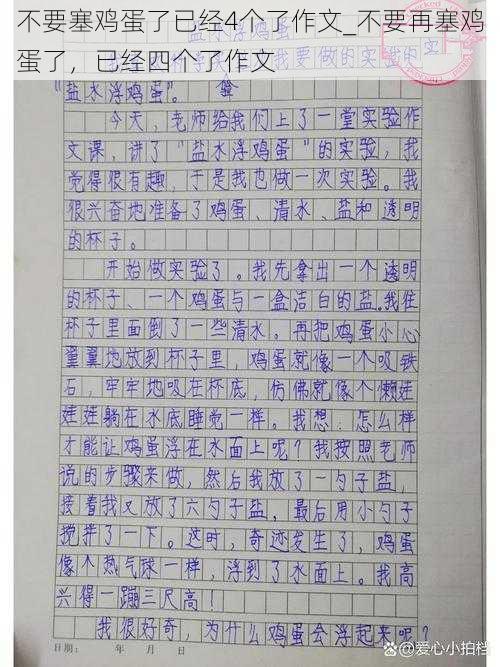 不要塞鸡蛋了已经4个了作文_不要再塞鸡
蛋了，已经四个了作文
我要做的实
"盐水浮鸡蛋"。验
今天，老师给我们上了一堂实验作
文课，讲了"盐水浮鸡蛋"的实验，我
觉得很有趣，于是我也做一次实验。我
很兴奋地准备了鸡蛋、清水、盐和透明
的杯子。
开始做实验了。我先拿出一个透明
的杯子、一个鸡蛋与一盒洁白的盐。我往
杯子里面倒了一些清水。再把鸡蛋小心
翼翼地放到杯子里，鸡蛋就像一个吸铁
石，牢牢地吸在杯底，仿佛就像个懒娃
娃娃躺在水底睡觉一样。我想：怎么样
才能让鸡蛋浮在水面上呢？我按照老师
说的步骤来做，然后我放了一勺子盐，
接着我又放了六勺子盐，最后用小勺子
搅拌了一下。这时，奇迹发生了，鸡蛋
像个热气球一样，浮到了水面。我高
兴得一蹦三尺高！
我很好奇，为什么鸡蛋会浮起来呢？
日期： 年 月 日
@爱心小拍档